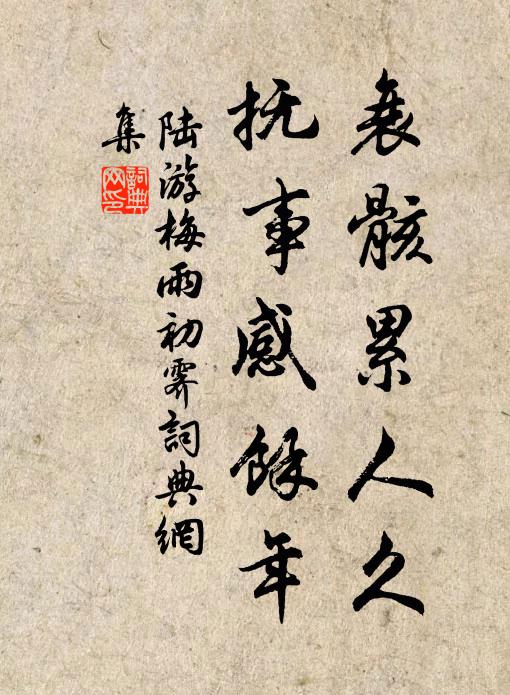 衰骸累人久
抚事感餘年
陆游梅雨初霁詞典網
集
詞典
网印